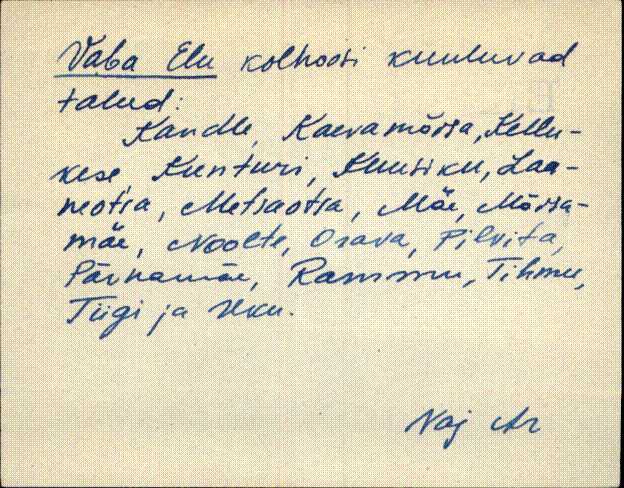 Vaba Elu kolhoosi kuuluvad
talud:
Kandle, Kaevamõisa, Kellu-
kese, Kunturi, Kuusiku, Laa-
neotsa, Metsaotsa, Mäe, Mõisa-
mäe, Noolte, Orava, Pilvita,
Pärnamäe, Rammu, Tihmu,
Tiigi ja Uku.
Noj Ar